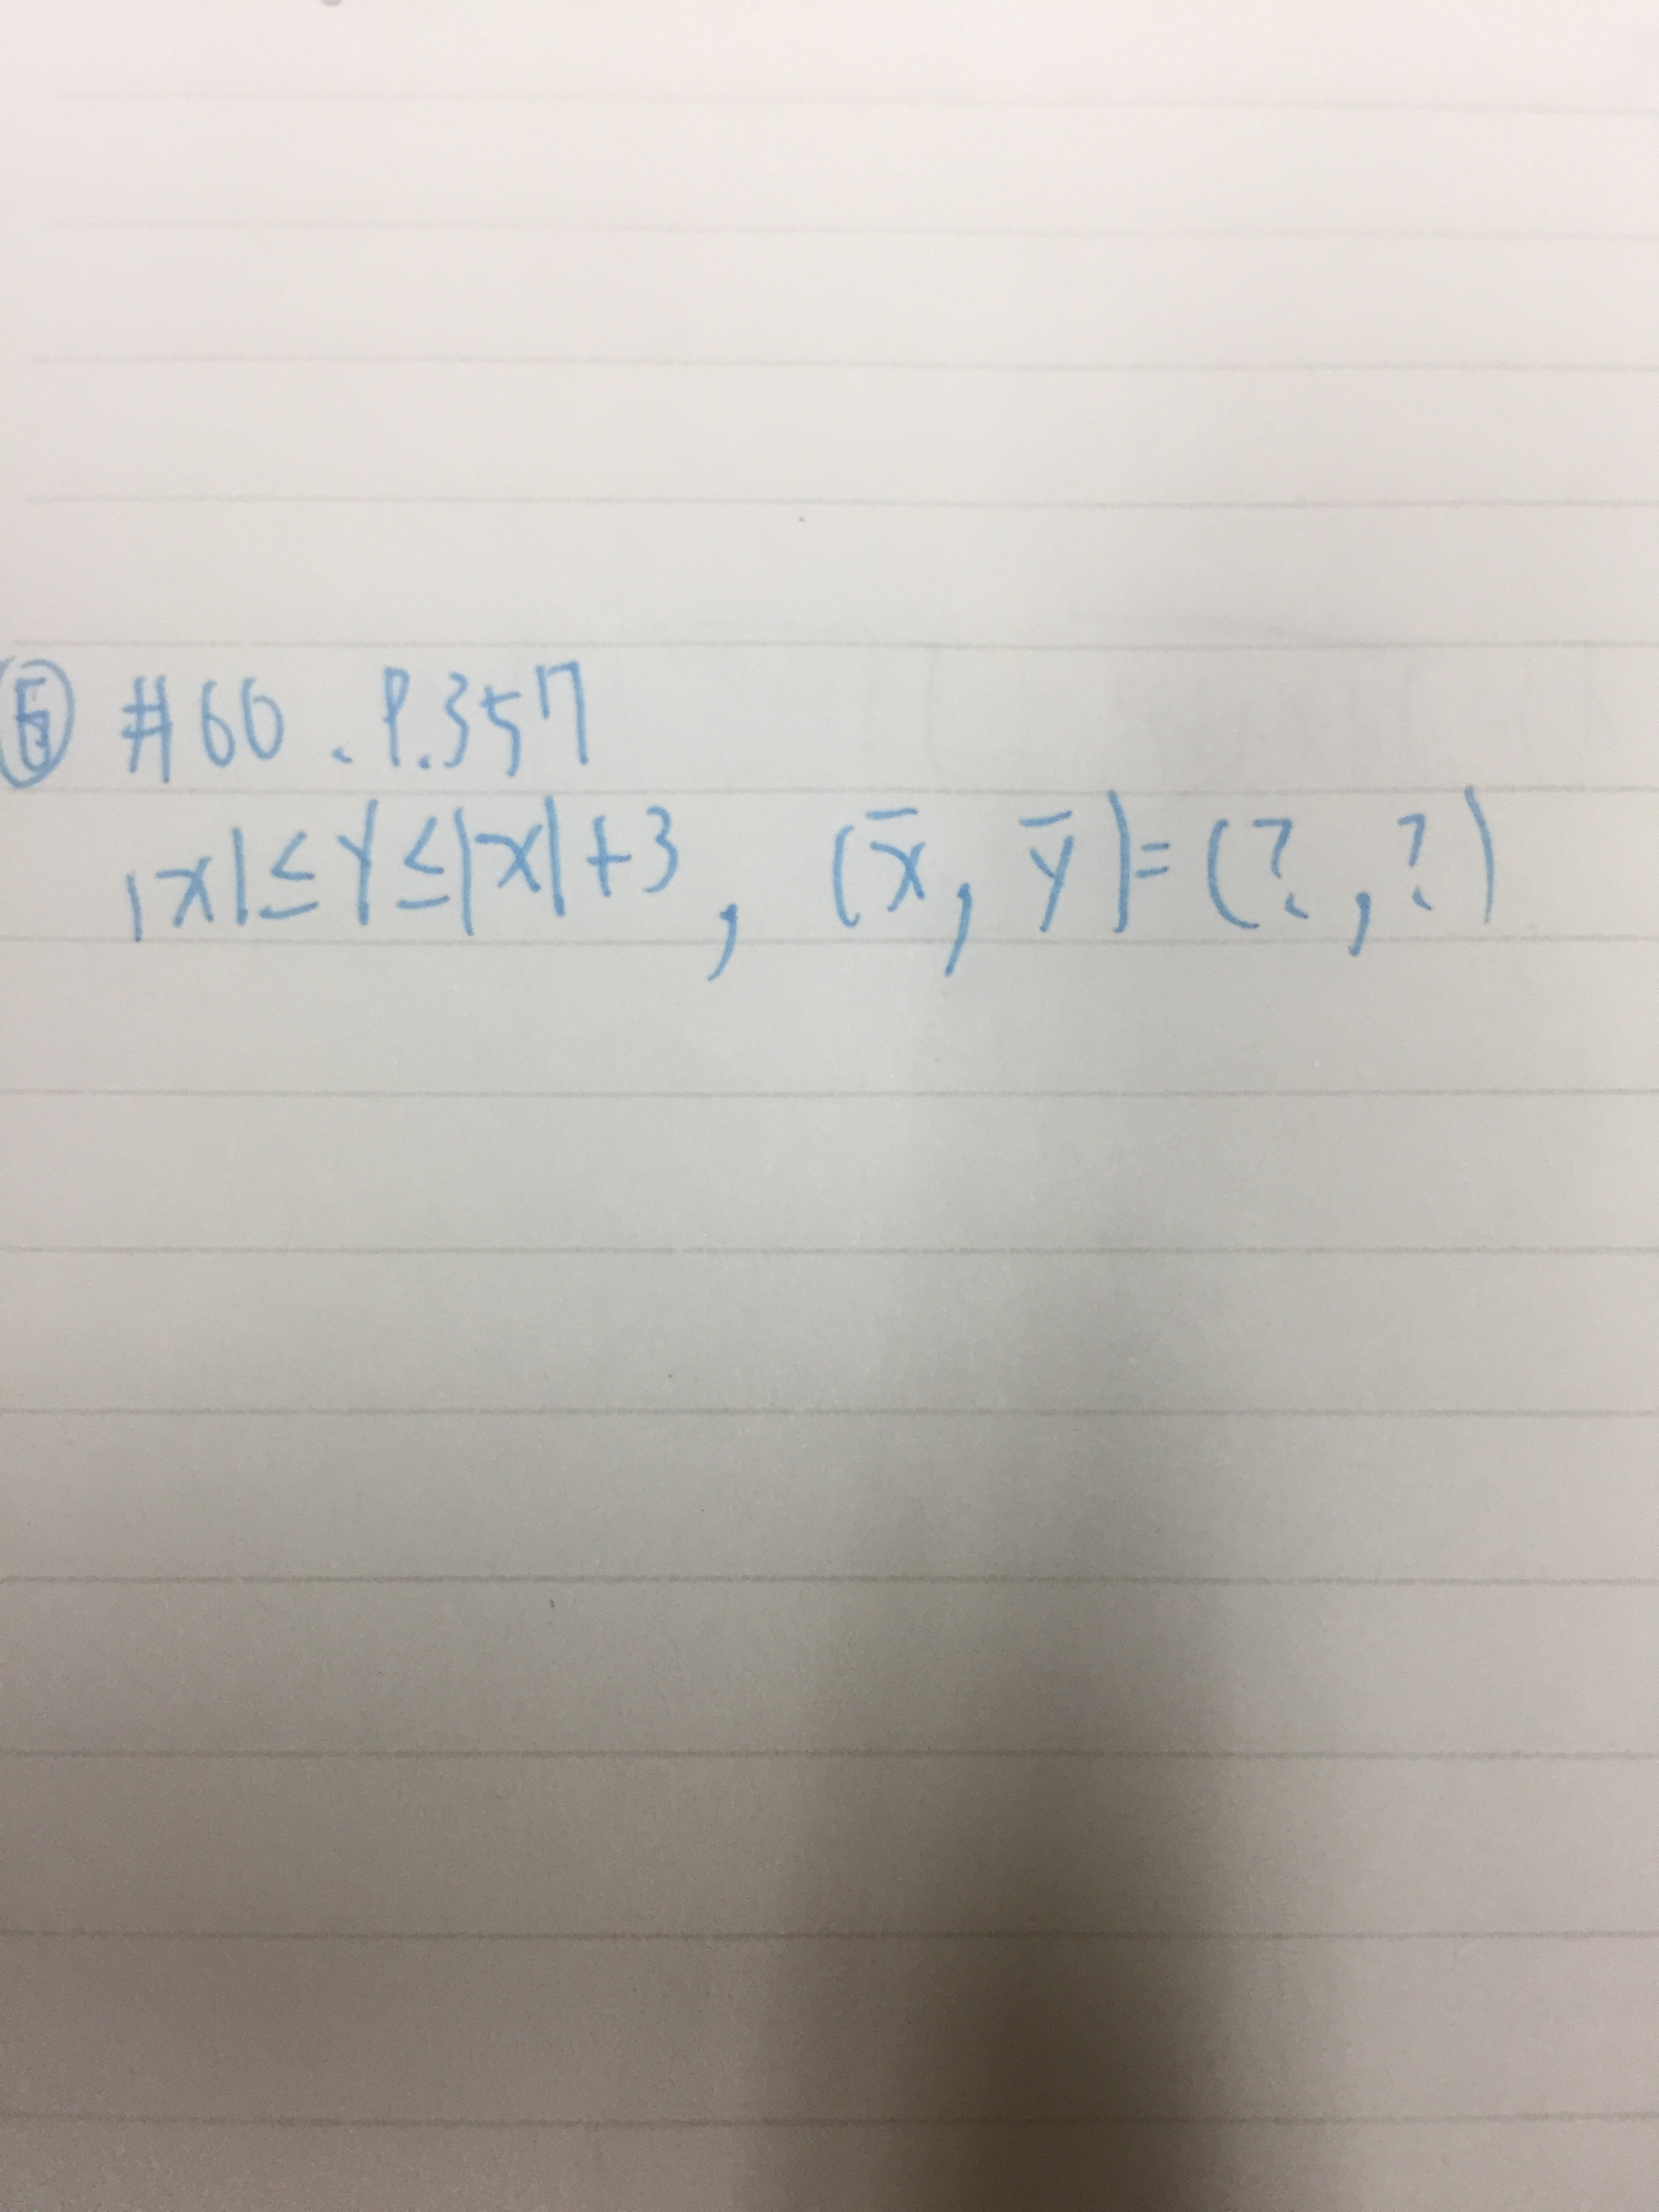 ⑤ #60. P.357
|x|≤y≤|x|+3, (x̄, ȳ)=(?,?)